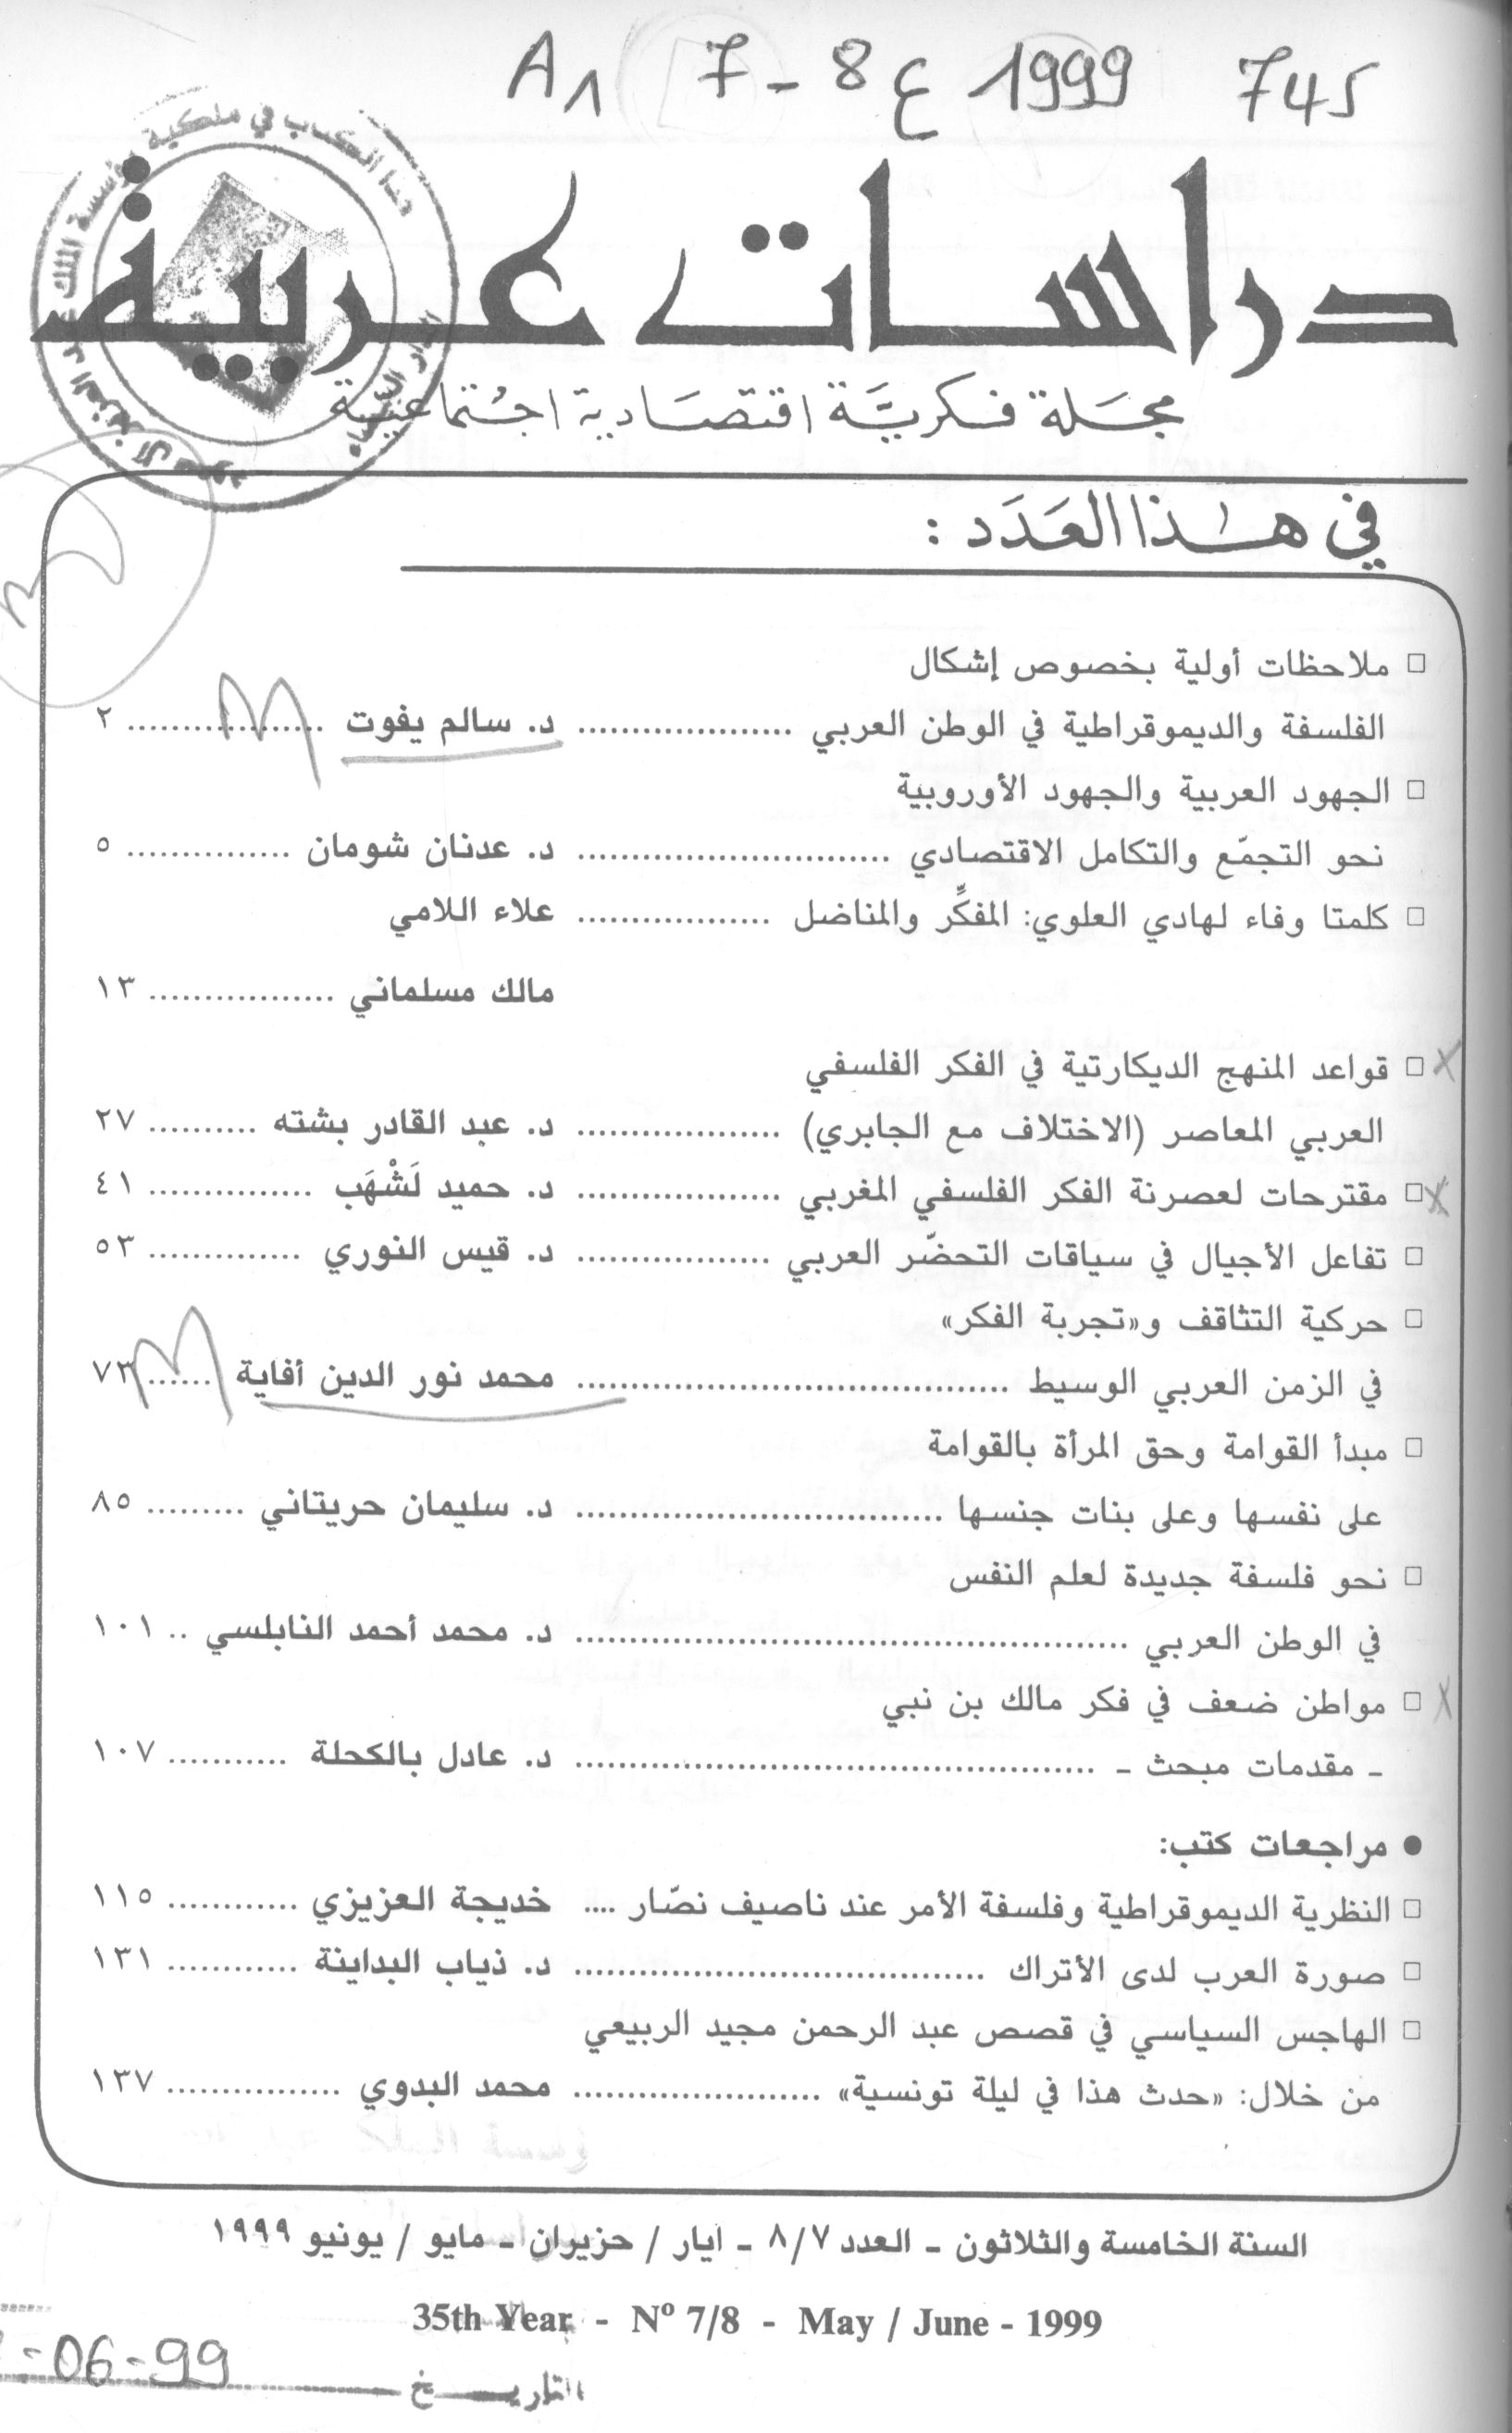 A1 7-8 ع 1999 745
دراسات عربية
مجلة فكريَّة اقتصَادية اجتماعيَّة
في هٰذا العَدَد :
□ ملاحظات أولية بخصوص إشكال
الفلسفة والديموقراطية في الوطن العربي ................... د. سالم يفوت .................. ٢
□ الجهود العربية والجهود الأوروبية
نحو التجمّع والتكامل الاقتصادي ............................ د. عدنان شومان ............... ٥
□ كلمتا وفاء لهادي العلوي: المفكِّر والمناضل .................. علاء اللامي
مالك مسلماني ................. ١٣
□ قواعد المنهج الديكارتية في الفكر الفلسفي
العربي المعاصر (الاختلاف مع الجابري) ................... د. عبد القادر بشته .......... ٢٧
□ مقترحات لعصرنة الفكر الفلسفي المغربي ................... د. حميد لَشْهَب ............... ٤١
□ تفاعل الأجيال في سياقات التحضّر العربي .................. د. قيس النوري .............. ٥٣
□ حركية التثاقف و«تجربة الفكر»
في الزمن العربي الوسيط ....................................... محمد نور الدين أفاية ...... ٧٣
□ مبدأ القوامة وحق المرأة بالقوامة
على نفسها وعلى بنات جنسها ................................. د. سليمان حريتاني ......... ٨٥
□ نحو فلسفة جديدة لعلم النفس
في الوطن العربي .................................................. د. محمد أحمد النابلسي .. ١٠١
□ مواطن ضعف في فكر مالك بن نبي
ـ مقدمات مبحث ـ ............................................... د. عادل بالكحلة ........... ١٠٧
● مراجعات كتب:
□ النظرية الديموقراطية وفلسفة الأمر عند ناصيف نصّار .... خديجة العزيزي ............ ١١٥
□ صورة العرب لدى الأتراك ..................................... د. ذياب البداينة ............ ١٣١
□ الهاجس السياسي في قصص عبد الرحمن مجيد الربيعي
من خلال: «حدث هذا في ليلة تونسية» ...................... محمد البدوي ................ ١٣٧
السنة الخامسة والثلاثون ـ العدد ٨/٧ ـ ايار / حزيران ـ مايو / يونيو ١٩٩٩
35th Year - Nº 7/8 - May / June - 1999
التاريـــخ -06-99